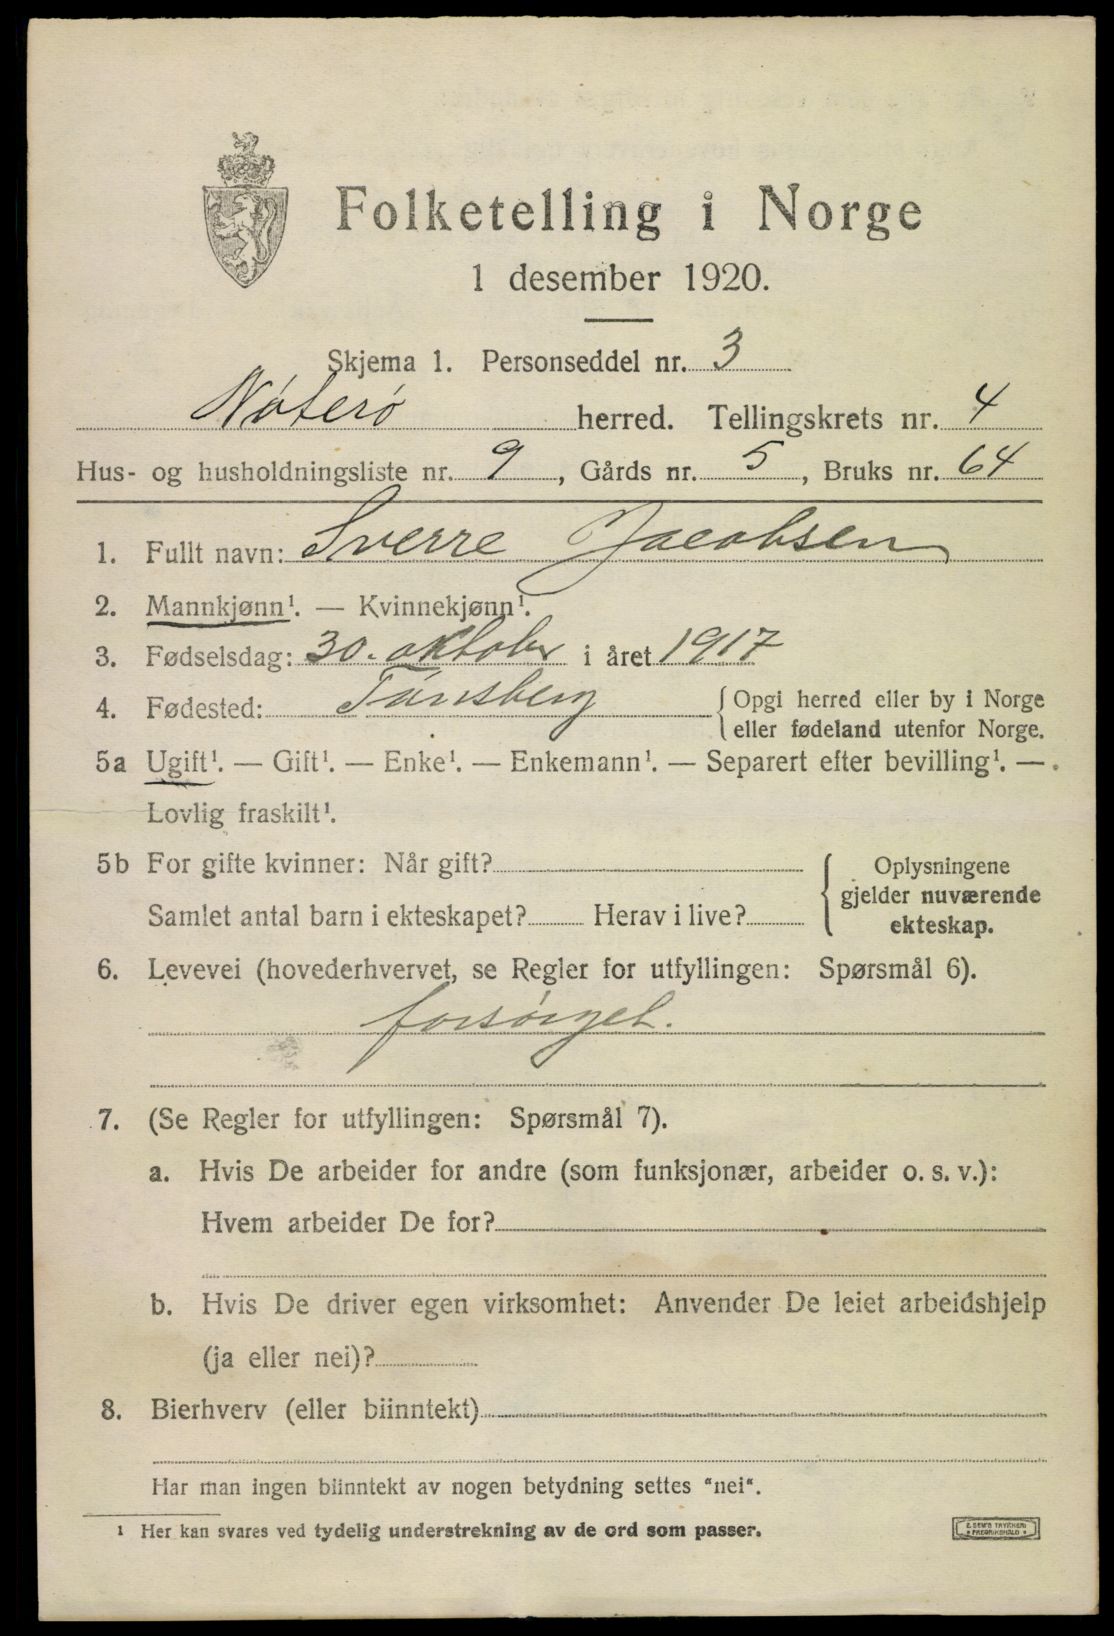 Folketelling i Norge
1 desember 1920.
Skjema 1. Personseddel nr. 3
Nøterø herred. Tellingskrets nr. 4
Hus- og husholdningsliste nr. 9, Gårds nr. 5, Bruks nr. 64
1. Fullt navn: Sverre Jacobsen
2. Mannkjønn¹. — Kvinnekjønn¹.
3. Fødselsdag: 30. oktober i året 1917
4. Fødested: Tønsberg { Opgi herred eller by i Norge
eller fødeland utenfor Norge.
5a Ugift¹. — Gift¹. — Enke¹. — Enkemann¹. — Separert efter bevilling¹. —
Lovlig fraskilt¹.
5b For gifte kvinner: Når gift? { Oplysningene
gjelder nuværende
Samlet antal barn i ekteskapet? Herav i live?
ekteskap.
6. Levevei (hovederhvervet, se Regler for utfyllingen: Spørsmål 6).
forsørget.
7. (Se Regler for utfyllingen: Spørsmål 7).
a. Hvis De arbeider for andre (som funksjonær, arbeider o. s. v.):
Hvem arbeider De for?
b. Hvis De driver egen virksomhet: Anvender De leiet arbeidshjelp
(ja eller nei)?
8. Bierhverv (eller biinntekt)
Har man ingen biinntekt av nogen betydning settes "nei".
¹ Her kan svares ved tydelig understrekning av de ord som passer.
E. SEM'S TRYKKERI
FREDRIKSHALD